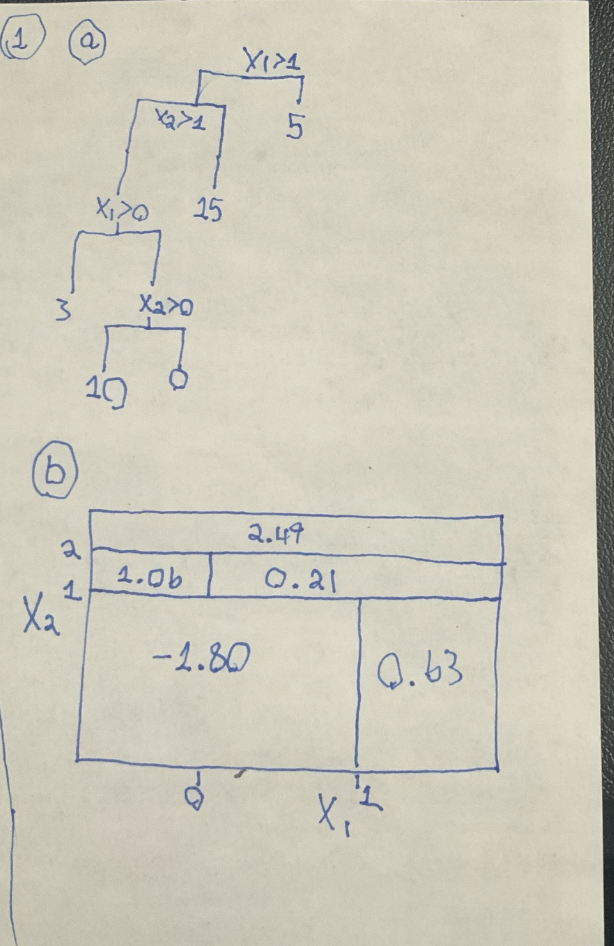 1 a
X₁>1
X₂>1 5
X₁>0 15
3 X₂>0
10 0
b
2.49
2
1.06 0.21
1
X₂
-1.80 0.63
0 X₁ 1